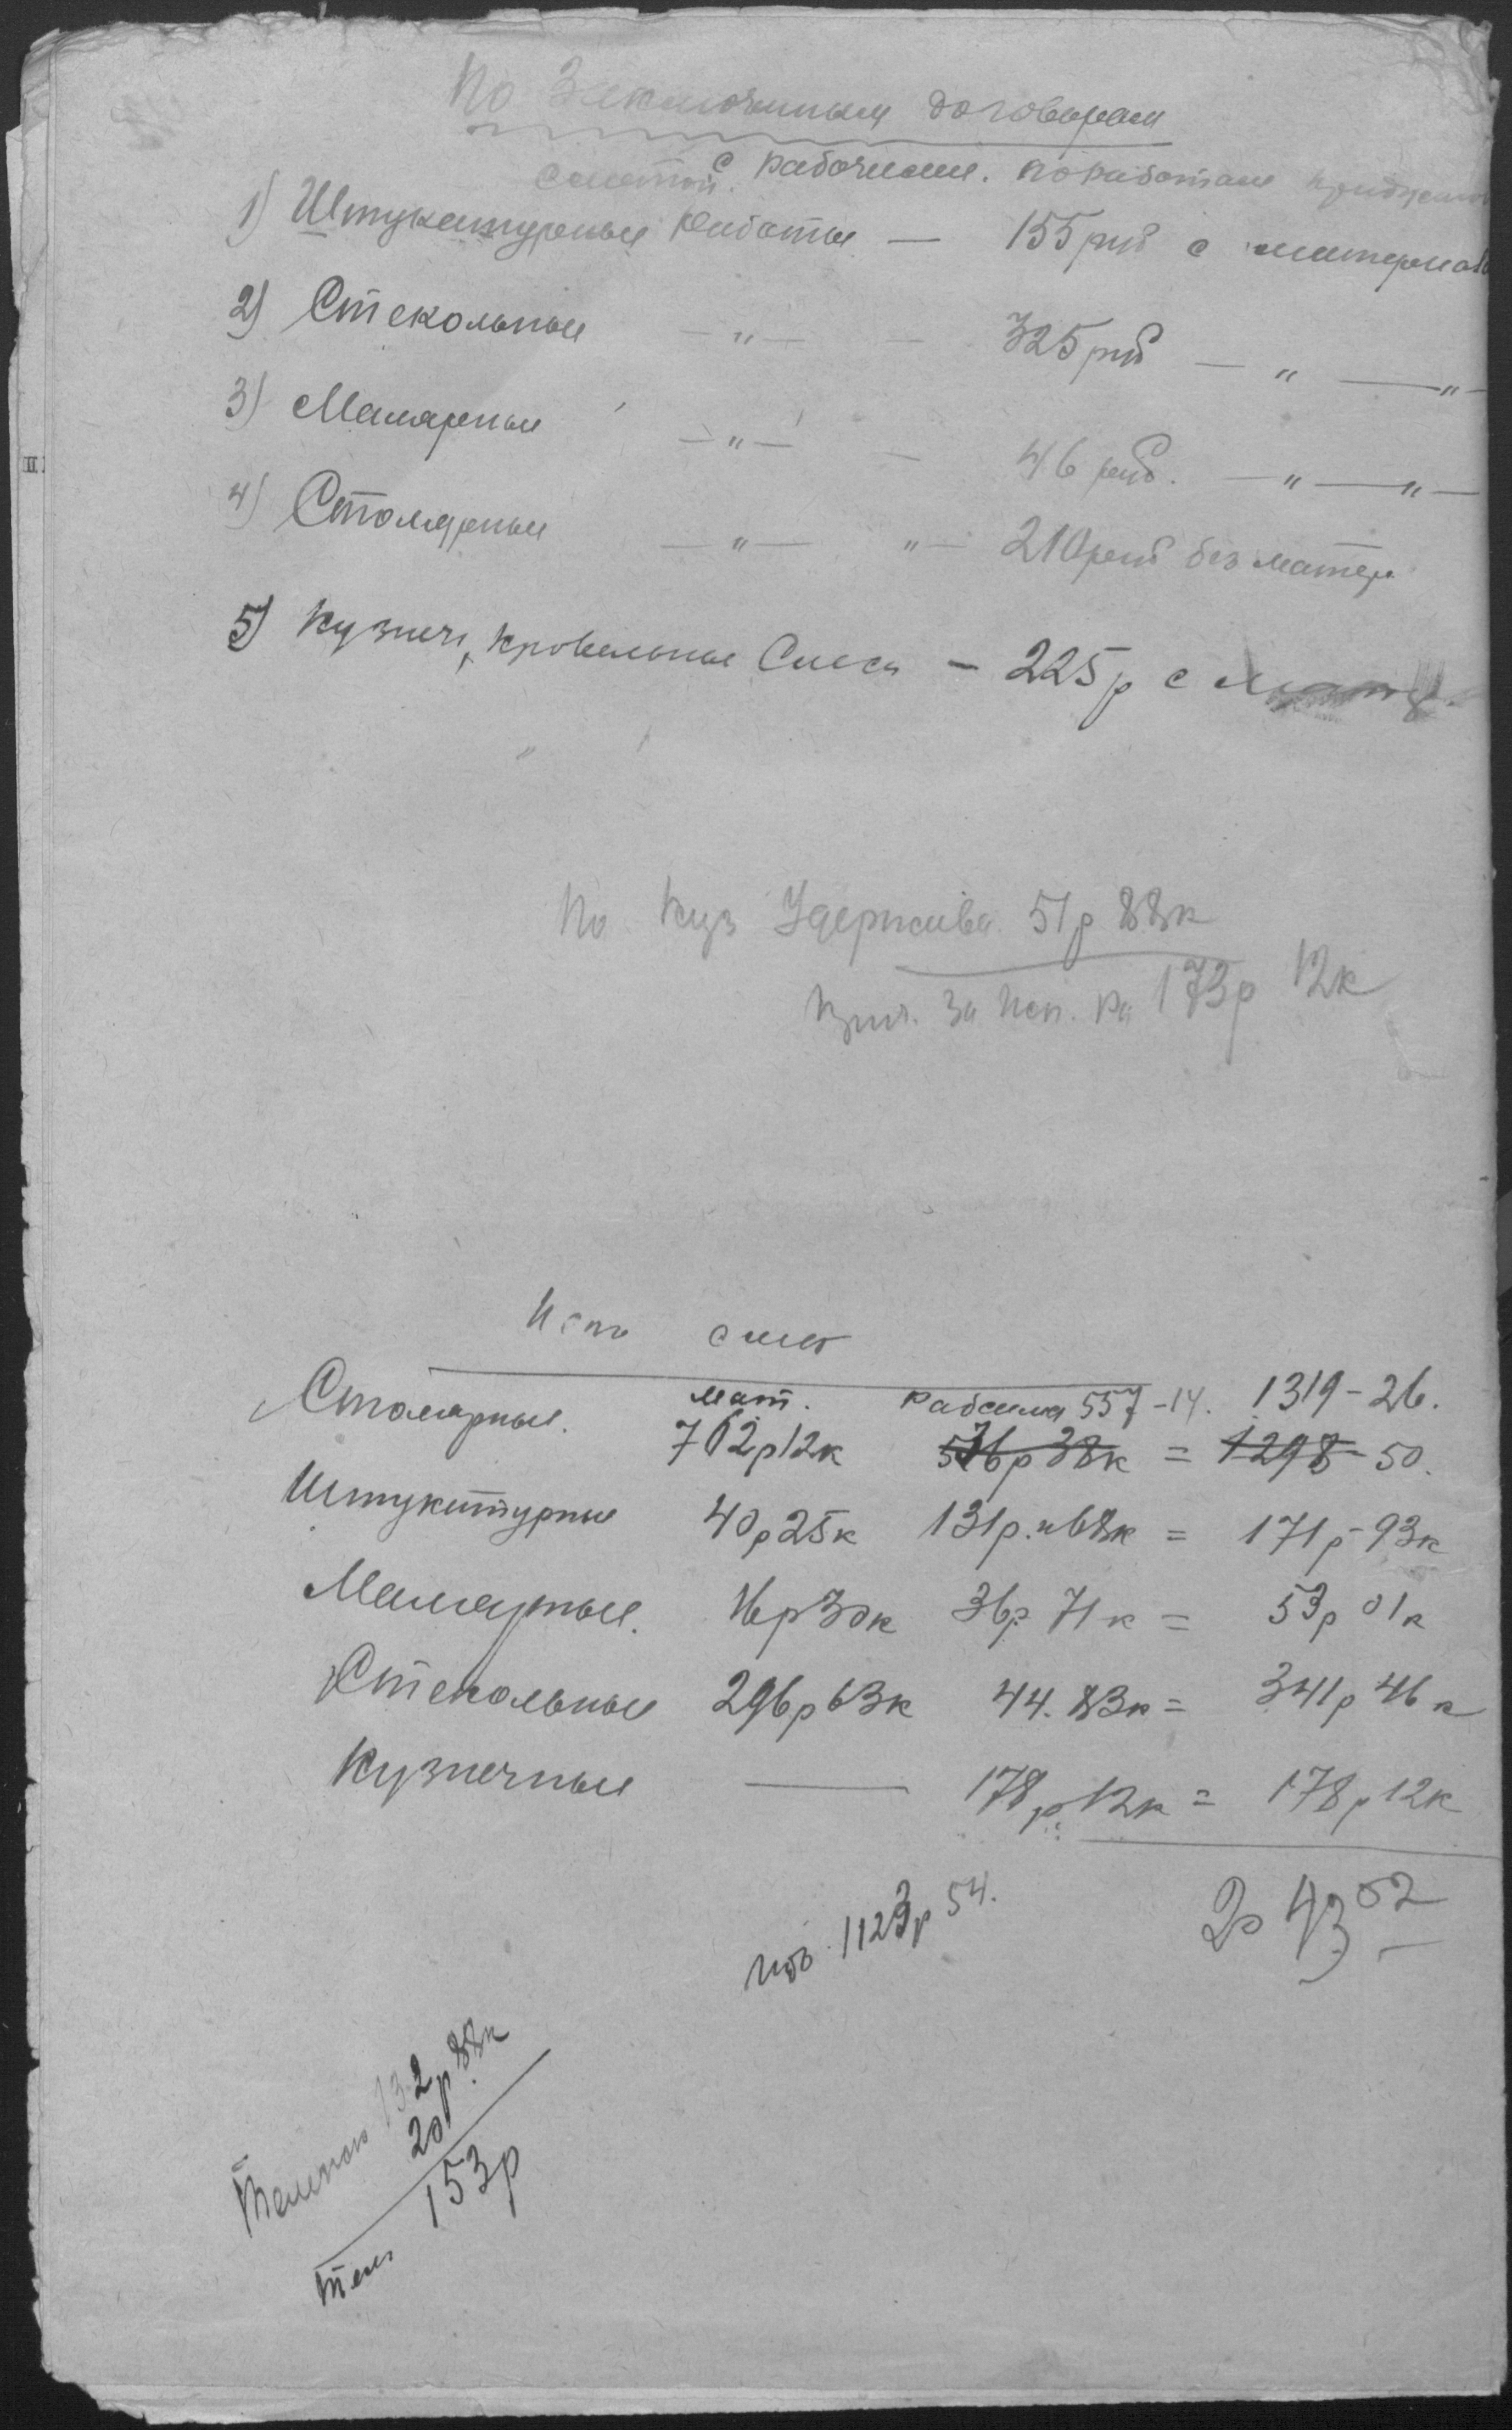 По Заключенным договорам
сметой с рабочими. по работам
1) Штукатурные Работы — 155 руб с материал
2) Стекольные — " — — 325 руб — " — " —
3) Малярные — " — — 46 руб. — " — " —
4) Столярные — " — " — 210 руб без матер.
5) Кузнеч, кровельные — 225 р с
По Куз Удержива 51 р 88 к
за Исп. Ра 173 р 12 к
Исп смет
мат. Рабсила 557-14. 1319-26.
Столярные. 762 р 12 к 536 р 38 к = 1298-50.
Штукатурные 40 р 25 к 131 р. 68 к = 171 р-93 к
Малярные. 16 р 30 к 36 р 71 к = 53 р 01 к
Стекольные 296 р 63 к 44. 83 к = 341 р 46 к
Кузнечные — 178 р. 12 к = 178 р 12 к
1123 р 54.
2043 52
132 р. 88 к
20
153 р